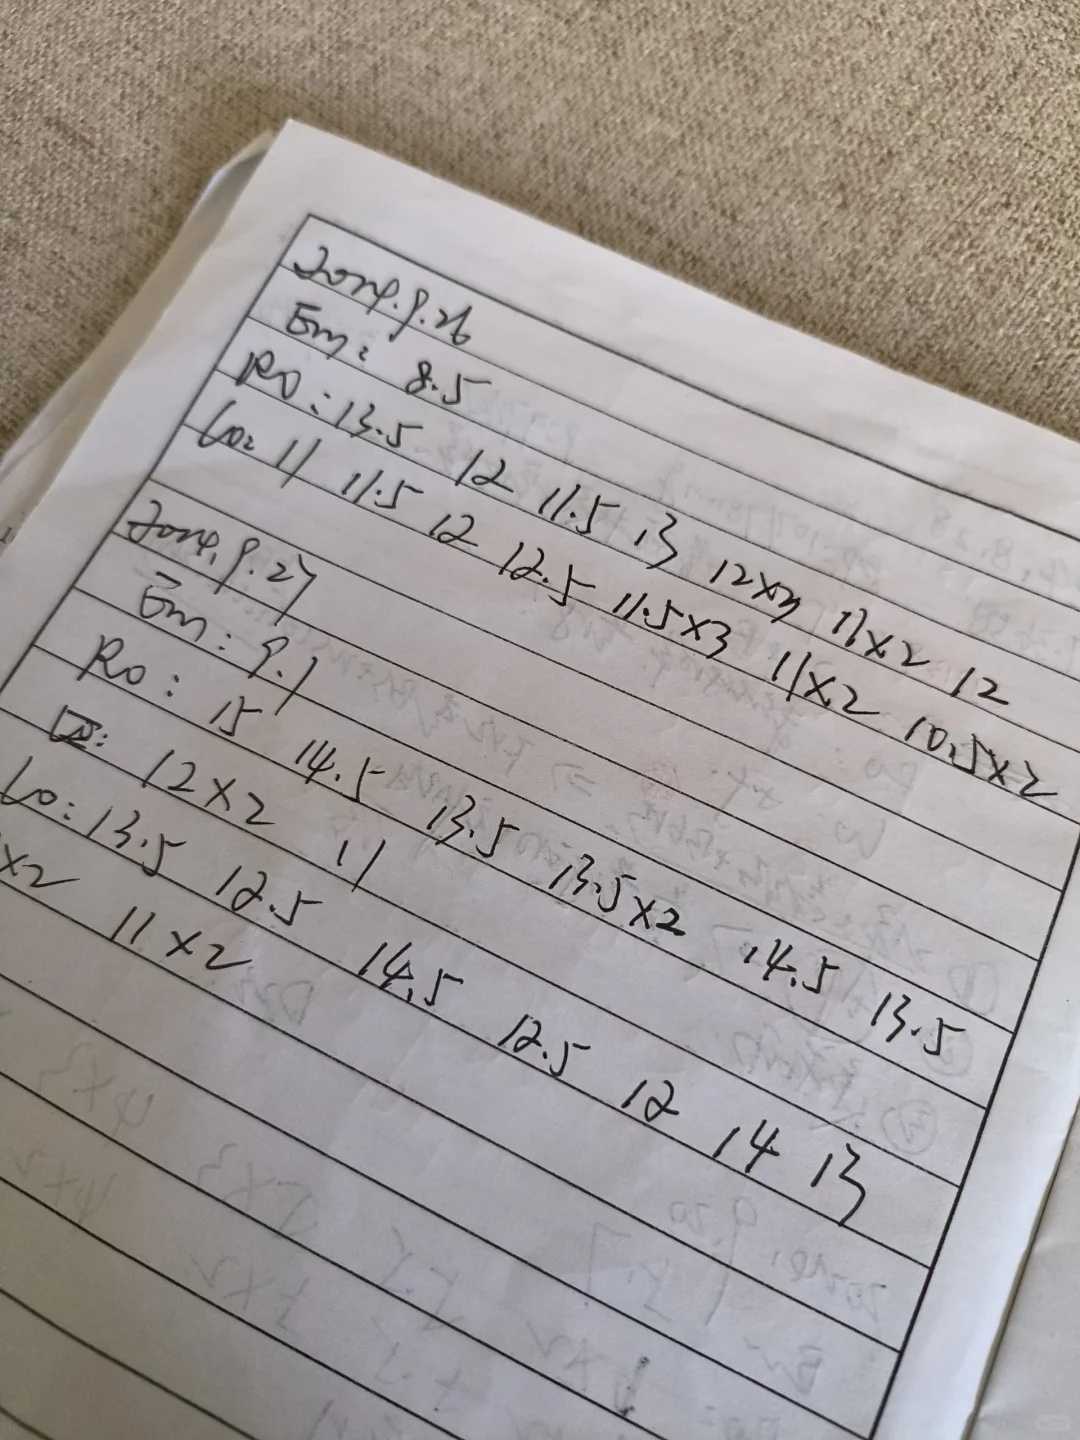 2024.9.26
Em: 8.5
RO: 13.5 12 11.5 13 12x3 11x2 12
Lo: 11 11.5 12 12.5 11.5x3 11x2 10.5x2
2024.9.27
Em: 9.1
Ro: 15 14.5 13.5 13.5x2 14.5 13.5
12x2 11
Lo: 13.5 12.5 14.5 12.5 12 14 13
x2 11x2